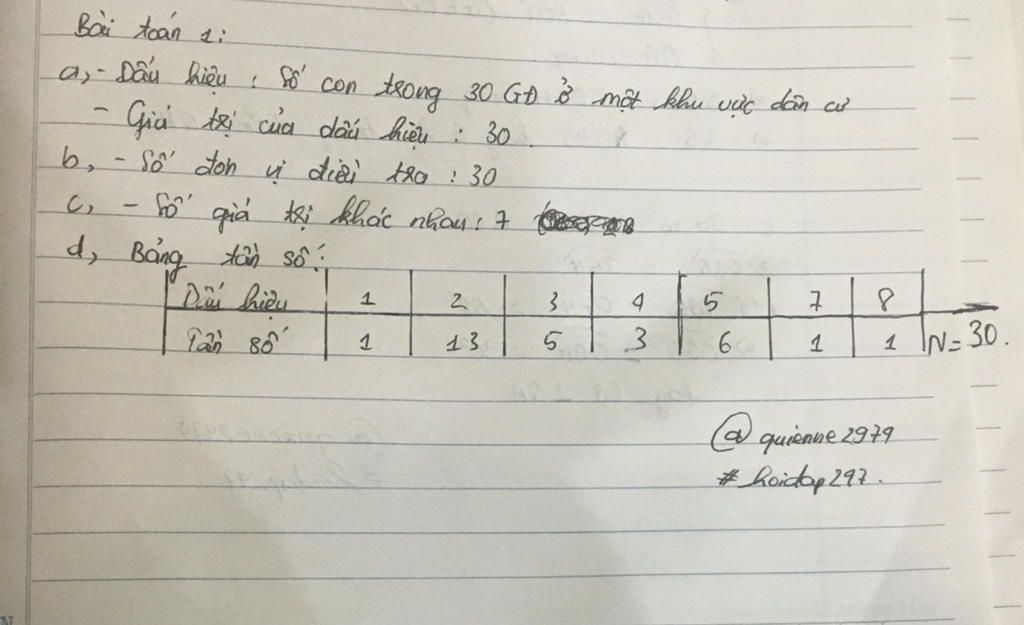 Bài toán 1:
a, - Dấu hiệu : Số con trong 30 GĐ ở một khu vực dân cư
- Giá trị của dấu hiệu : 30.
b, - Số đơn vị điều tra : 30
c, - Số giá trị khác nhau : 7
d, Bảng tần số :
Dấu hiệu 1 2 3 4 5 7 8
Tần số 1 13 5 3 6 1 1 N = 30.
@quienne2979
#hoidap297.